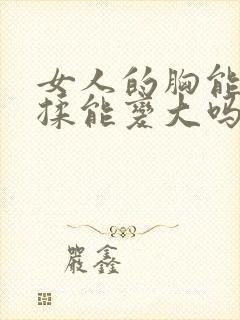 女人的胸能
揉能变大吗
严鑫